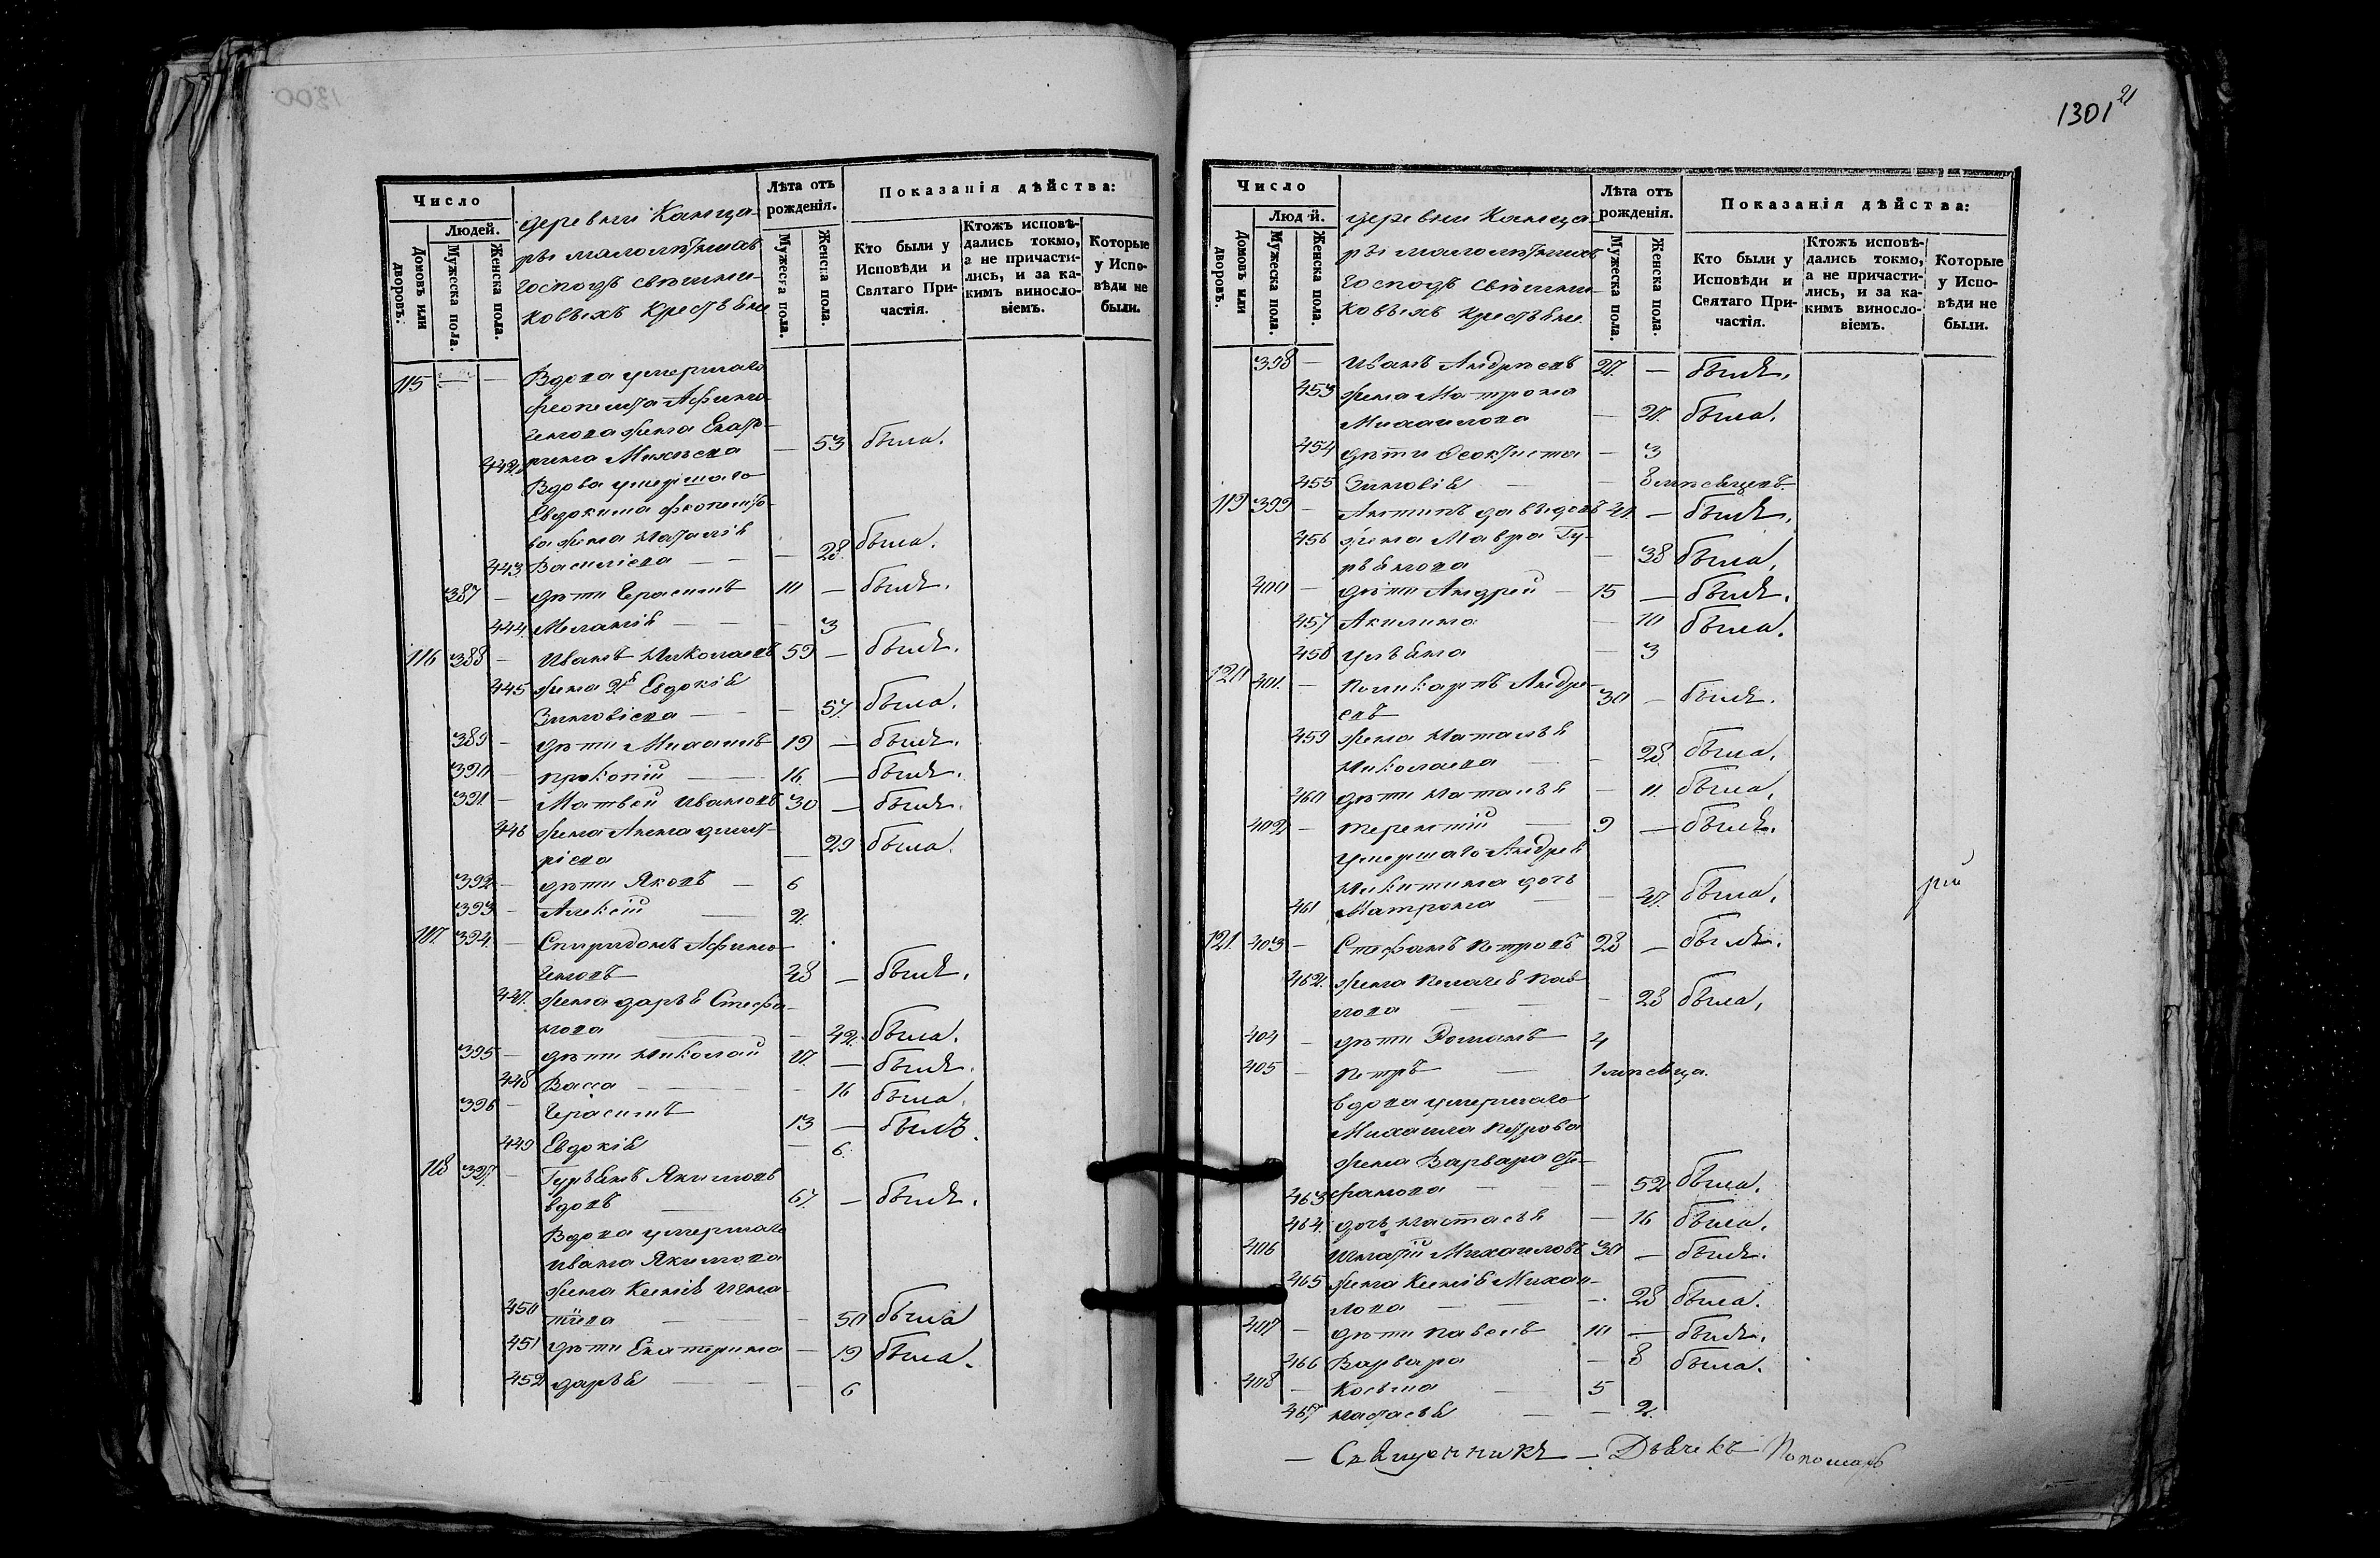 1301 21
Число
Людей.
Домовъ или дворовъ.
Мужеска пола.
Женска пола.
деревни Канца-
ры малолѣтнихъ
Господъ
ковыхъ Крестьяне
Лѣта отъ рожденія.
Мужеска пола.
Женска пола.
Показанія дѣйства:
Кто были у Исповѣди и Святаго Причастія.
Ктожъ исповѣдались токмо, а не причастились, и за какимъ винословіемъ.
Которые у Исповѣди не были.
115 — — Вдова умершаго
Феопемта Афино-
генова жена Екате-
442 рина Михѣева — 53 была.
Вдова умершаго
Евдокима Феопемто-
ва жена Наталія
443 Василіева — — 28. была.
387 — дѣти Герасимъ 10 — былъ.
444 Меланія — — 3
116 388 — Иванъ Николаевъ 59 — былъ.
445 жена 2я Евдокія
Зиновіева — — 57. была.
389 — дѣти Михаилъ 19 — былъ.
390 — Прокопій — 16. — былъ.
391 — Матвей Ивановъ 30 — былъ.
446 жена Анна Дмит-
ріева — 29 была.
392 — дѣти Яковъ — 6
393 — Алексій — 2.
117. 394. — Спиридонъ Афино-
геновъ 48 — былъ.
447. жена Дарья Стефа-
нова — 42. была.
395 — дѣти Николай 17. — былъ.
448 Васса — — 16 была.
396 — Герасимъ 13 — былъ.
449 Евдокія — 6.
118 397. — Гурьянъ Якимовъ
вдовъ — 67. — былъ.
Вдова умершаго
Ивана Якимова
жена Ксенія Игна-
450 тіева — — 50 была
451 дѣти Екатерина — 19 была.
452 Дарья — — 6
Число
Людей.
Домовъ или дворовъ.
Мужеска пола.
Женска пола.
деревни Канца-
ры малолѣтнихъ
Господъ
ковыхъ Крестьяне.
Лѣта отъ рожденія.
Мужеска пола.
Женска пола.
Показанія дѣйства:
Кто были у Исповѣди и Святаго Причастія.
Ктожъ исповѣдались токмо, а не причастились, и за какимъ винословіемъ.
Которые у Исповѣди не были.
398 — Иванъ Андреевъ 27. — былъ.
453 жена Матрона
Михаилова — 27. была.
454 дѣти Феоктиста — 3
455 Зиновія — — 8 мѣсяцевъ.
119 399 — Антипъ Давыдовъ — былъ.
456 жена Мавра Гу-
рьянова — 38 была.
400 — дѣти Андрей — 15 — былъ.
457 Акилина — 10 была.
458 Ульяна — 3
120 401. — Поликарпъ Андре-
евъ 30 — былъ.
459 жена Наталья
Николаева — — 28 была.
460 дѣти Наталья — 11. была.
402 — Терентій — 9 — былъ.
умершаго Андрея
Никитина дочь
461 Матрона — — 47. была.
рій
121. 403 — Стефанъ Петровъ 28 — былъ.
462. жена Пелагея Пав-
лова — — 28 была.
404 — дѣти Романъ 4
405 — Петръ — 1 мѣсяца.
вдова умершаго
Михаила Петрова
жена Варвара Сте-
463 фанова — — 52 была.
464. дочь Настасья — 16 была.
406 Игнатій Михаиловъ 30 — былъ.
465 жена Ксенія Михаи-
лова — — 28 была.
407 — дѣти Павелъ 10 — былъ.
466 Варвара — 8 была.
408 — Косьма — 5
467 Настасья — — 2.
— Священникъ — Дьячекъ Пономарь